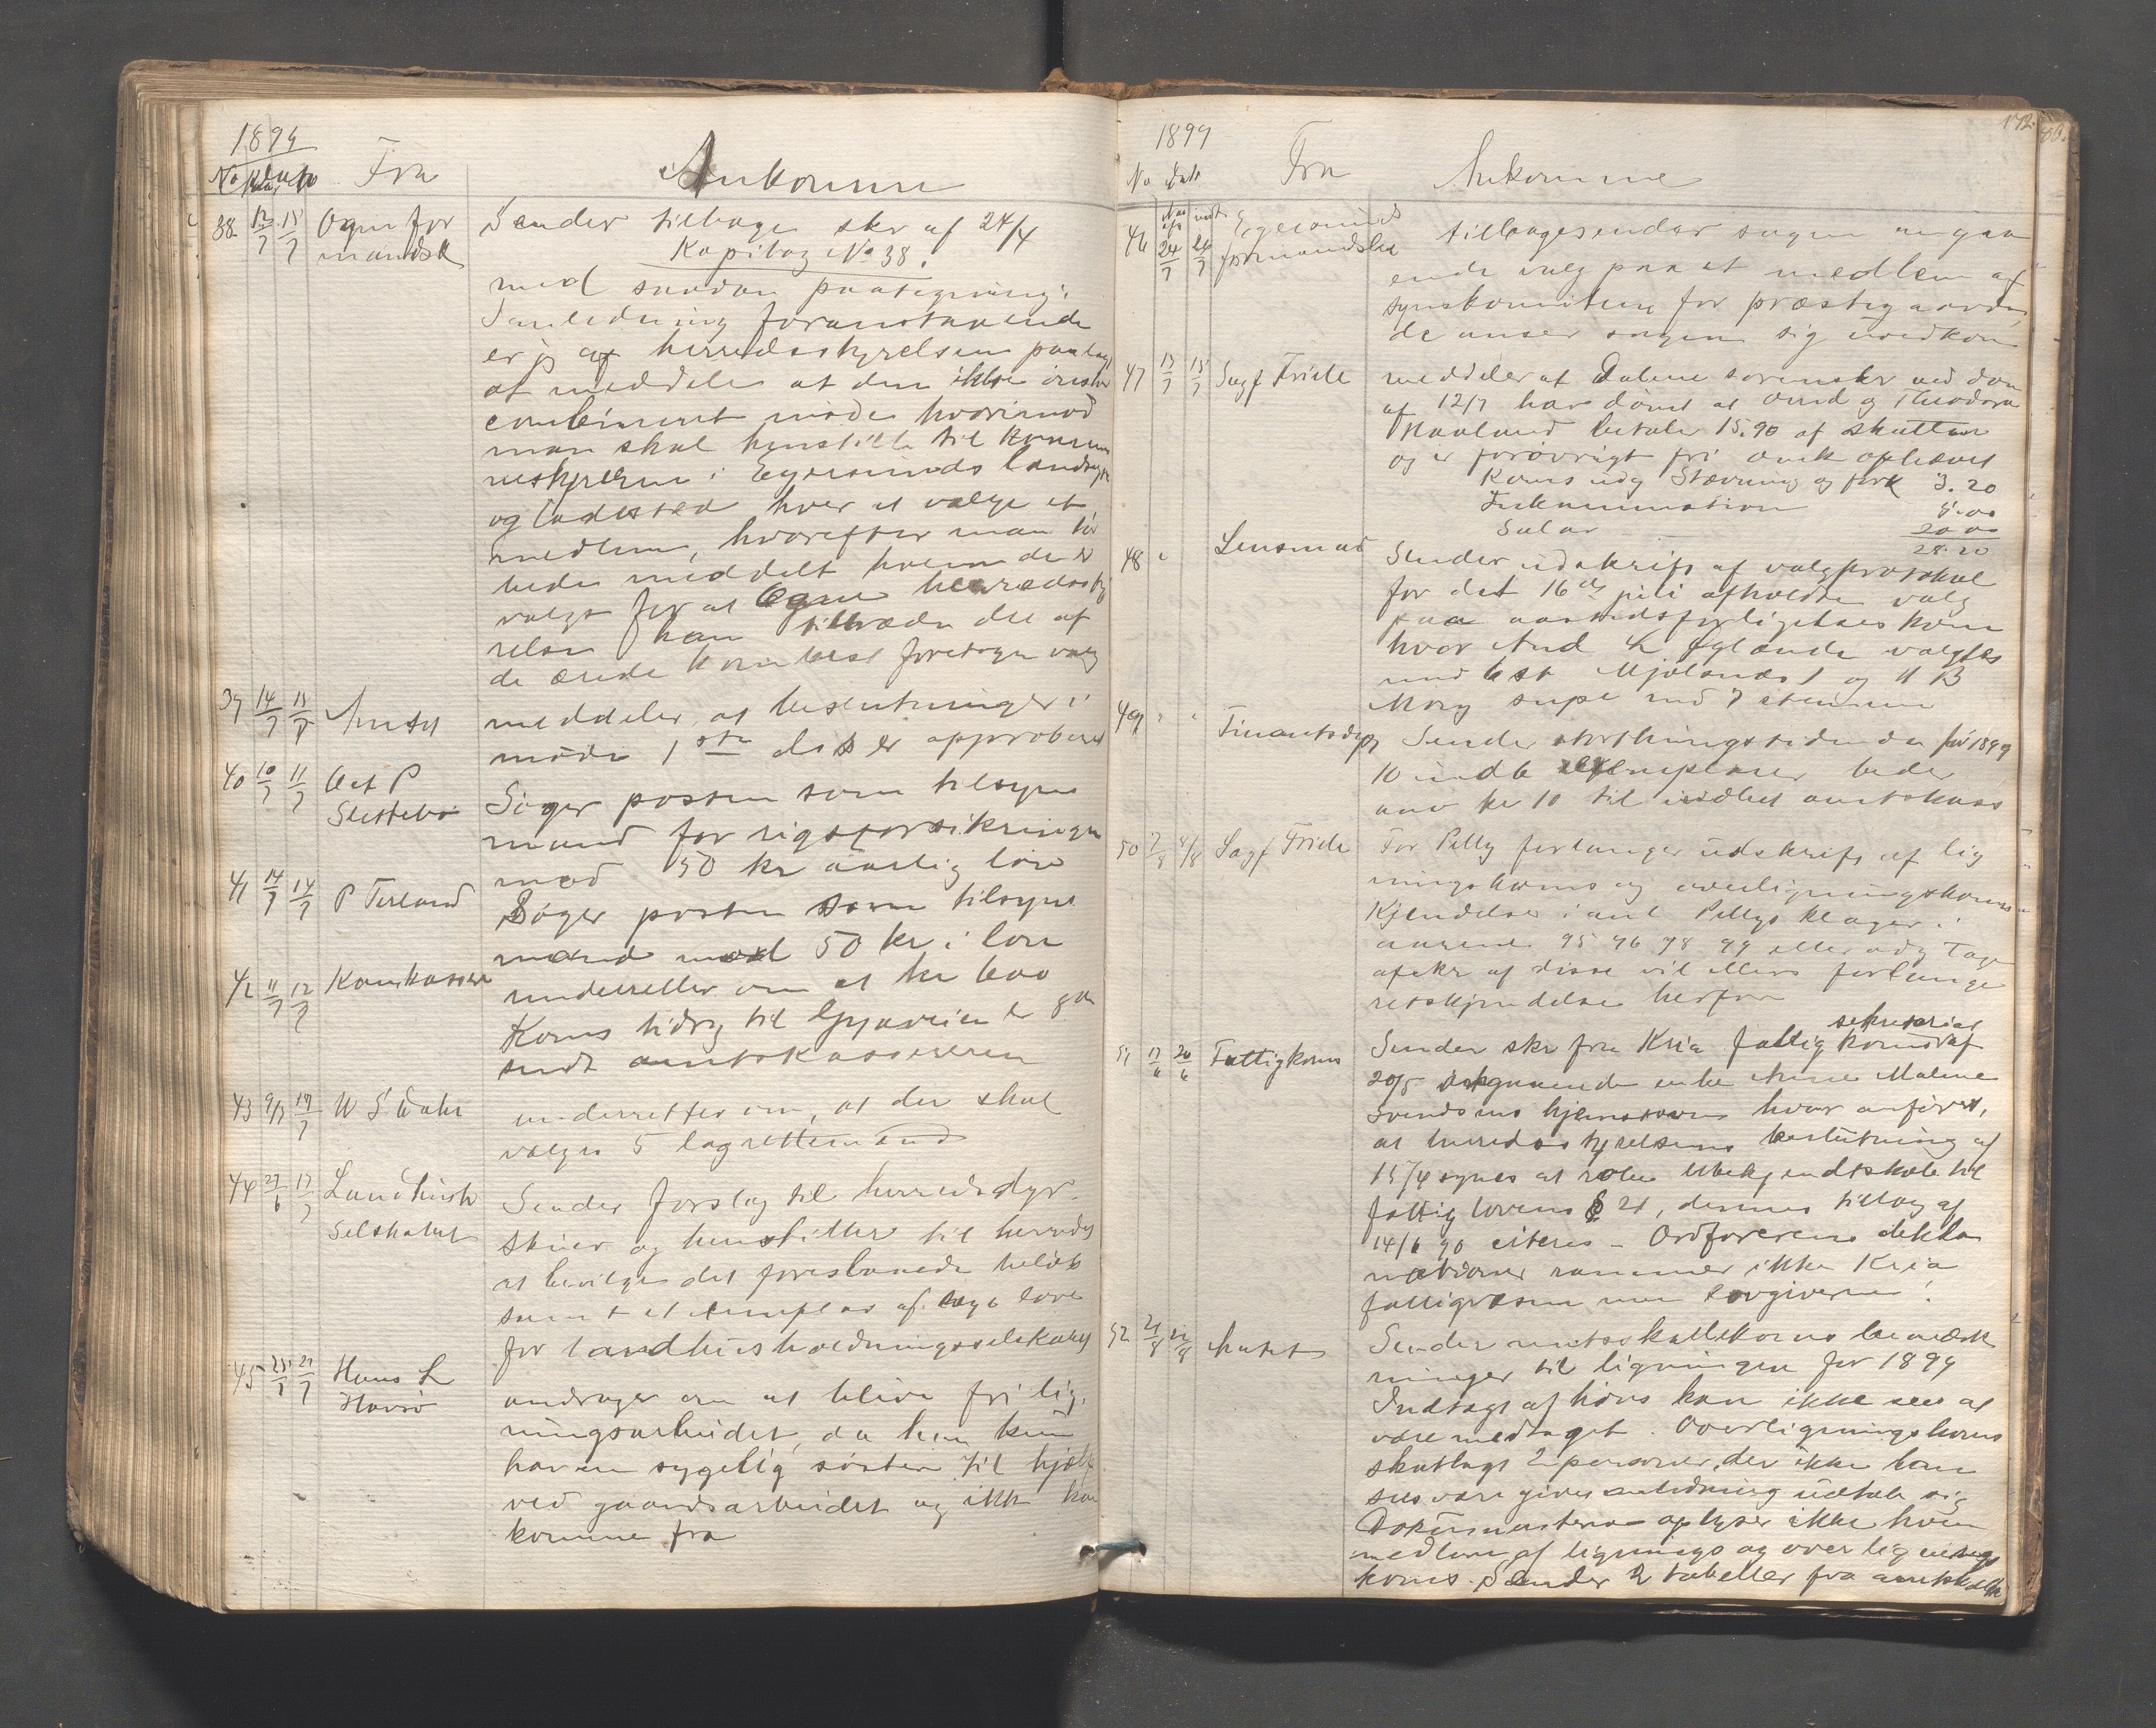 1899
No Dato Fra Ankomne
38 12/7 15/7 Ogne for
mandsk
Sender tilbage skr af 24/4
Kopibog No 38.
med saadan paategning:
I anledning foranstaaende
er jeg af herredsstyrelsen paalagt
at meddele at den ikke ønsker
combineret møde hvorimod
man skal henstille til kommu
nestyrerne i Egersunds landsogn
og ladested hver at vælge et
medlem, hvorefter man
bedes meddelt hvem der er
valgt for at Ogne herredssty
relse kan tiltræde det af
de ærede kombest foretagne valg
39 14/7 15/7 Amtet
meddeler at beslutninger i
møde 1ste ds er approberet
40 10/7 11/7 Oct P
Slettebø
Søger posten som tilsyns
mand for rigsforsikringen
mod 50 kr aarlig løn
41 14/7 14/7 P Terland
Søger posten som tilsyns
mand mod 50 kr i løn
42 11/7 12/7 Komkasser
underretter om at kr 600
Koms bidrag til Gyaveien er
sendt amtskassereren
43 9/7 17/7 W S Dahl
underretter om, at der skal
vælges 5 lagrettemænd
44 27/6 17/7 Landhush
Selskabet
Sender forslag til herredsdyr
skuer og henstiller til herredet
at bevilge det foreslaaede beløb
samt et exmplar af love
for landhusholdningsselskabet
45 25/7 27/7 Hans L
Havsø
andrager om at blive fri lig
ningsarbeidet, da han kun
har en sygelig søster til hjælp
ved gaardsarbeidet og ikke kan
komme fra
1899
172
No Dato Fra Ankomne
46 24/7 26/7 Egersunds
formandskab
tilbagesender sagen angaa
ende valg paa et medlem af
synskomiteen for præstegaarden,
de anser sagen sig uvedkom
47 13/7 15/7 Sagf Friele
meddeler at Dalene sorenskr ved dom
af 12/7 har dømt at Arnd og Theodora
Haaland betaler 15.90 af skatten
og er forøvrigt fri omk ophævet
Koms udg Stævning og fork 3.20
Inkammination 5.00
Salær 20 00
28.20
48 " Lensmand
Sender udskrift af valgprotokol
for det 16de juli afholdte valg
paa aastedsforligelses kom
hvor And L Øglænde valgtes
med 6 st Mjølsnæs 1 og H B
Mong supl med 7 stemmer
49 " " Finantsdep
Sender storthingstidende for 1899
10 indb exemplarer beder
anv kr 10 til indbet amtskass
50 7/8 8/8 Sagf Friele
For Petty forlanger udskrift af lig
ningskoms og overligningskoms
Kjendelse i anl Pettys klager i
aarene 95 96 98 99 eller udg Tage
afskr af disse vil ellers forlange
retskjendelse herfor
51 17/6 20/6 Fattigkoms
Sender skr fra Kria fattigkoms sekretariat af
20/5 angaaende enke Anne Malene
Svendsens hjemstavn hvor anføres,
at herredsstyrelsens beslutning af
15/4 synes at røbe ubekjendtskab til
fattiglovens § 21, dennes tillæg af
14/6 90 citeres – Ordførerens dekla
mationer rammer ikke Kria
fattigvæsen men lovgiveren!
52 21/8 22/8 Amtet
Sender amtsskattekoms bemærk
ninger til ligningen for 1899
Indtægt af høns kan ikke sees at
være medtaget. Overligningskoms
skatlagt 2 personer, der ikke kan
sees være given anledning udtale sig
Dokumenterne oplyser ikke hvem
medlem af lignings og overlignings
koms. Sender 2 tabeller fra amtsskattk